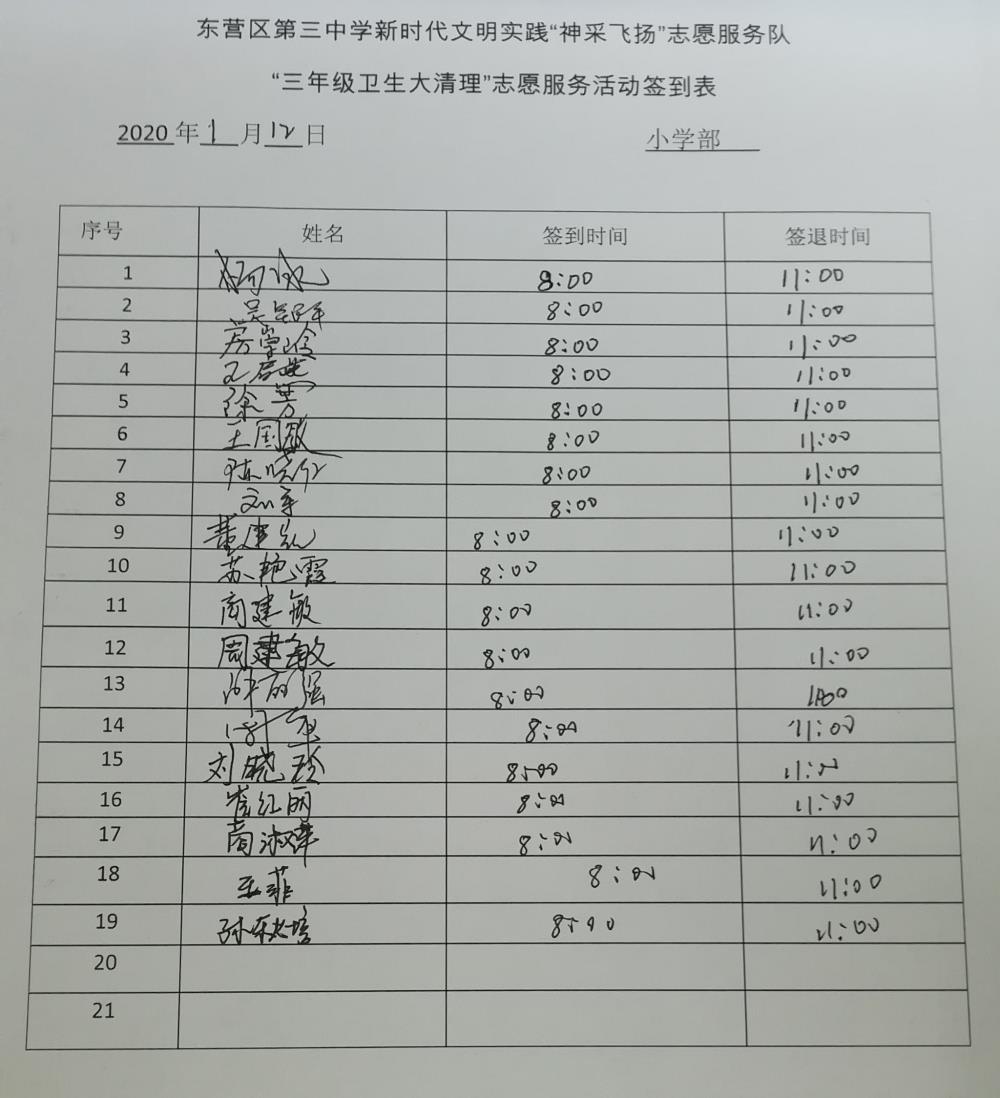 东营区第三中学新时代文明实践“神采飞扬”志愿服务队
“三年级卫生大清理”志愿服务活动签到表
2020 年 1 月 12 日 小学部
序号 姓名 签到时间 签退时间
1 8:00 11:00
2 8:00 11:00
3 8:00 11:00
4 8:00 11:00
5 徐芳 8:00 11:00
6 王国敏 8:00 11:00
7 8:00 11:00
8 刘军 8:00 11:00
9 8:00 11:00
10 苏艳霞 8:00 11:00
11 商建敏 8:00 11:00
12 周建敏 8:00 11:00
13 8:00 11:00
14 8:00 11:00
15 刘晓玲 8:00 11:00
16 崔红丽 8:00 11:00
17 8:00 11:00
18 王菲 8:00 11:00
19 8:00 11:00
20
21